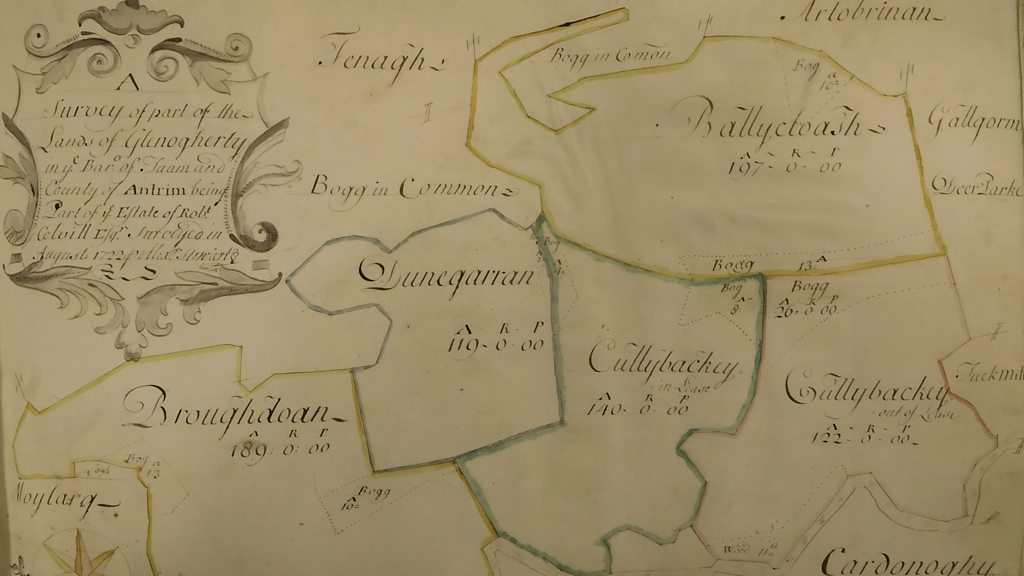 A
Survey of part of the
Lands of Glenogherty
in yᵉ Barᵒ of Toam and
County of Antrim being
Part of yᵉ Estate of Robᵗ
Colvill Esqʳ Surveyed in
August 1722
Artobrinan
Fenagh
Bogg in Comon
Bog
Ballycloash
A R P
197-0-00
Gallgorm
Deer Parke
Bogg in Common
Dunegarran
A R P
119-0-00
Bog
Bogg 13 A
Bog
8
Bogg
A R P
26-0-00
Cullybackey
in Lease
A R P
140-0-00
Cullybackey
out of Lease
A R P
122-0-00
Broughdoan
A R P
189-0-00
Bog
Bogg
Moylarg
Cardonoghy